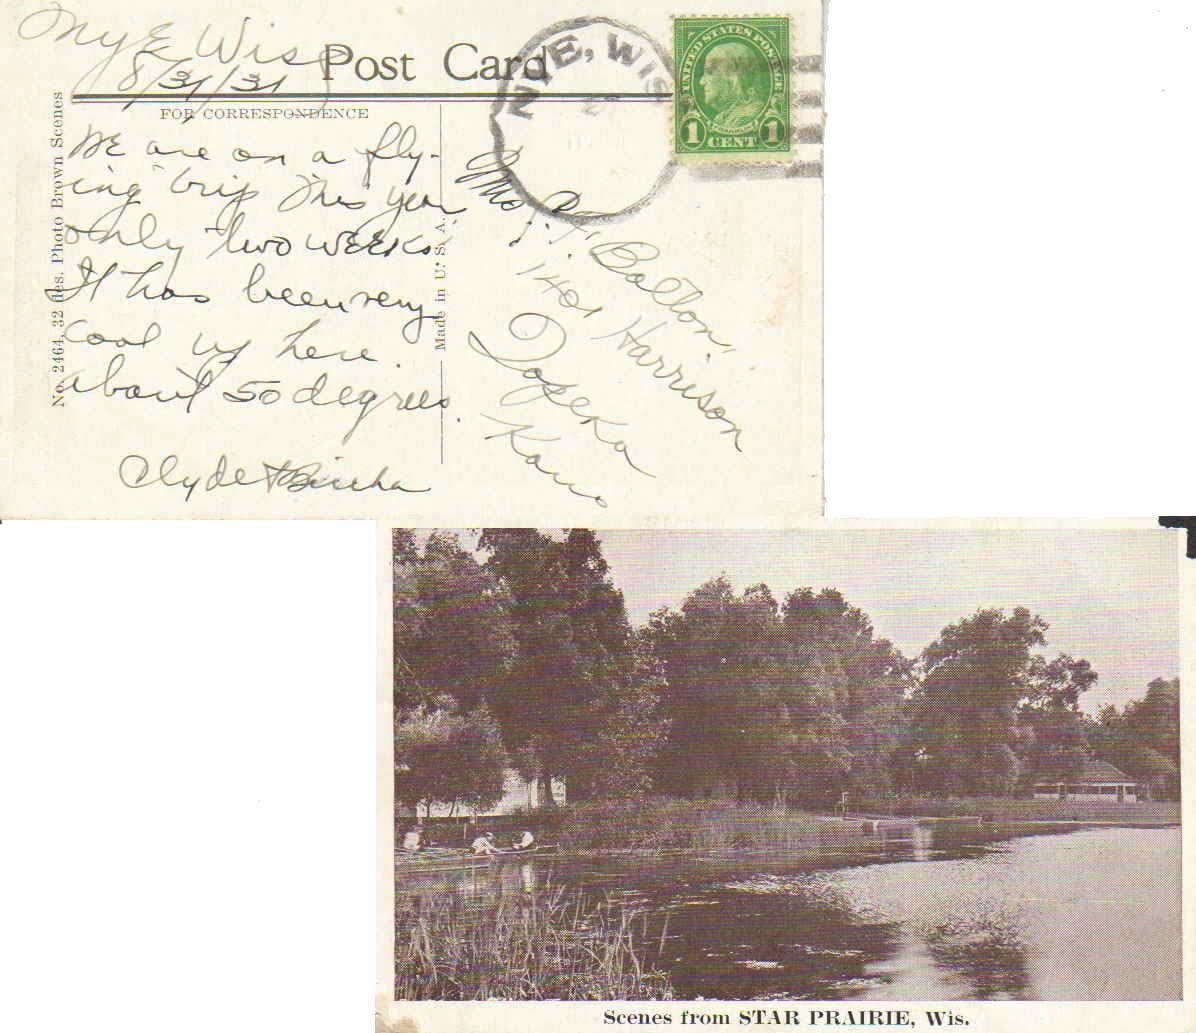 Nye Wis
8/31/31
Post Card
FOR CORRESPONDENCE
No. 2464, 32 des. Photo Brown Scenes
Made in U. S. A.
NYE, WIS
UNITED STATES POSTAGE
FRANKLIN
1 CENT 1
We are on a fly-
ing trip this year
only two weeks.
It has been very
cool up here.
about 50 degrees.
Clyde +
J. T. Bolton,
1401 Harrison
Topeka
Kans
Scenes from STAR PRAIRIE, Wis.